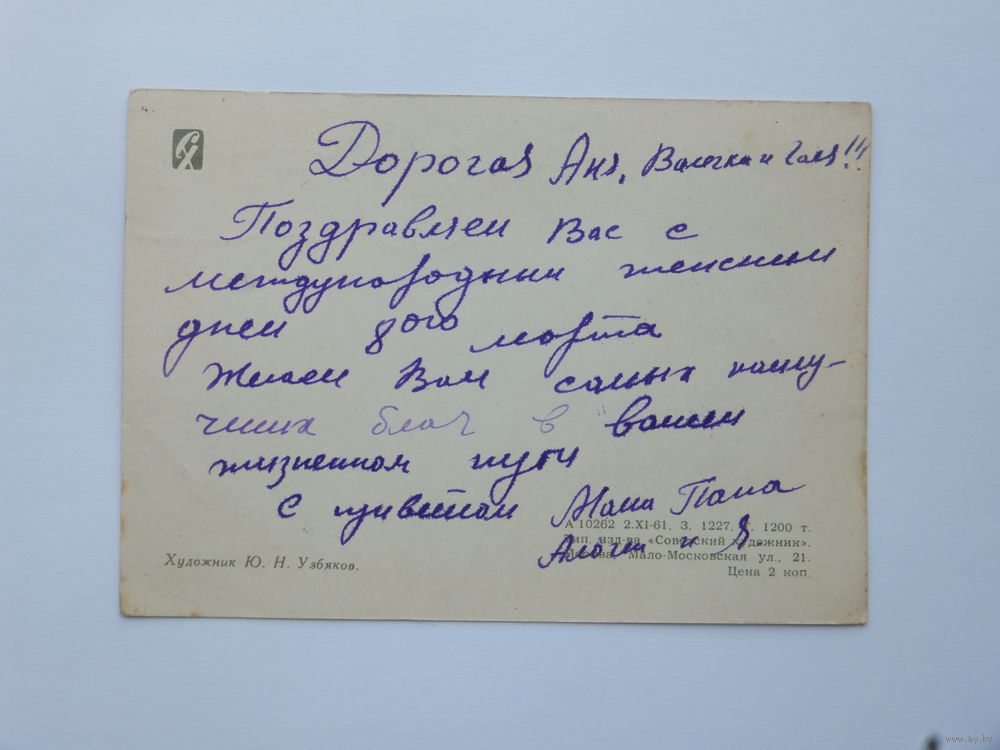 Дорогая Аня, Валечка и Галя!!!
Поздравляем Вас с
международным женским
днем 8ого марта
Желаем Вам самых наилу-
чших благ в вашем
жизненном пути
С приветом Мама Папа
и Я.
А 10262 2.XI-61. З. 1227. Т. 1200 т.
Тип. изд-ва «Советский художник».
Москва, Мало-Московская ул., 21.
Цена 2 коп.
Художник Ю. Н. Узбяков.
www.ay.by